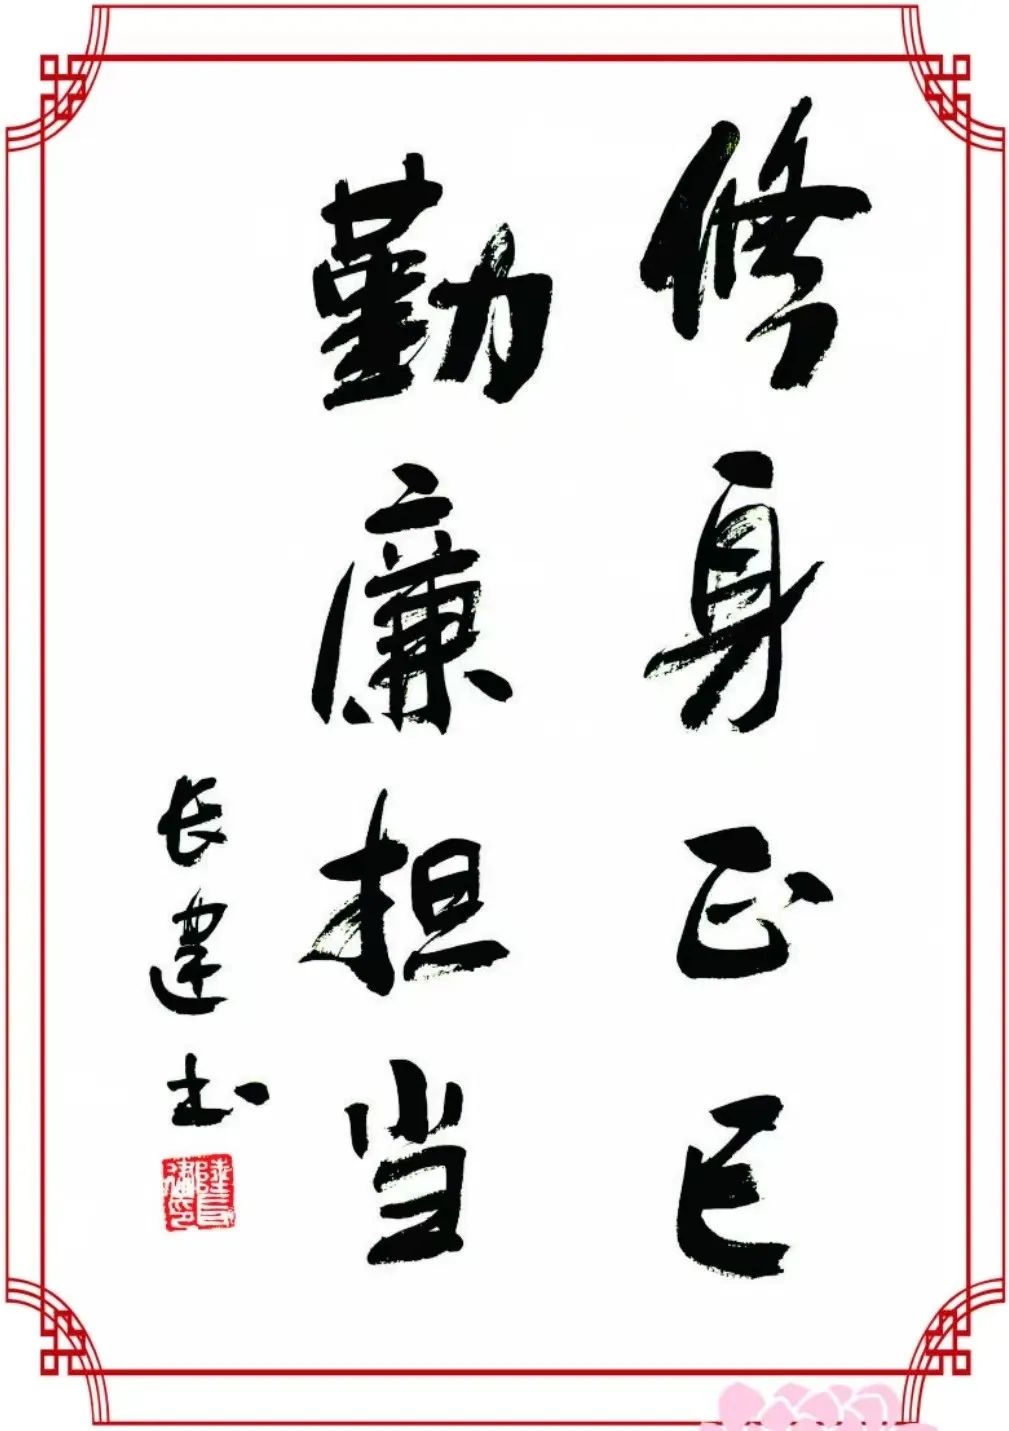 修身正己
勤廉担当
长建书